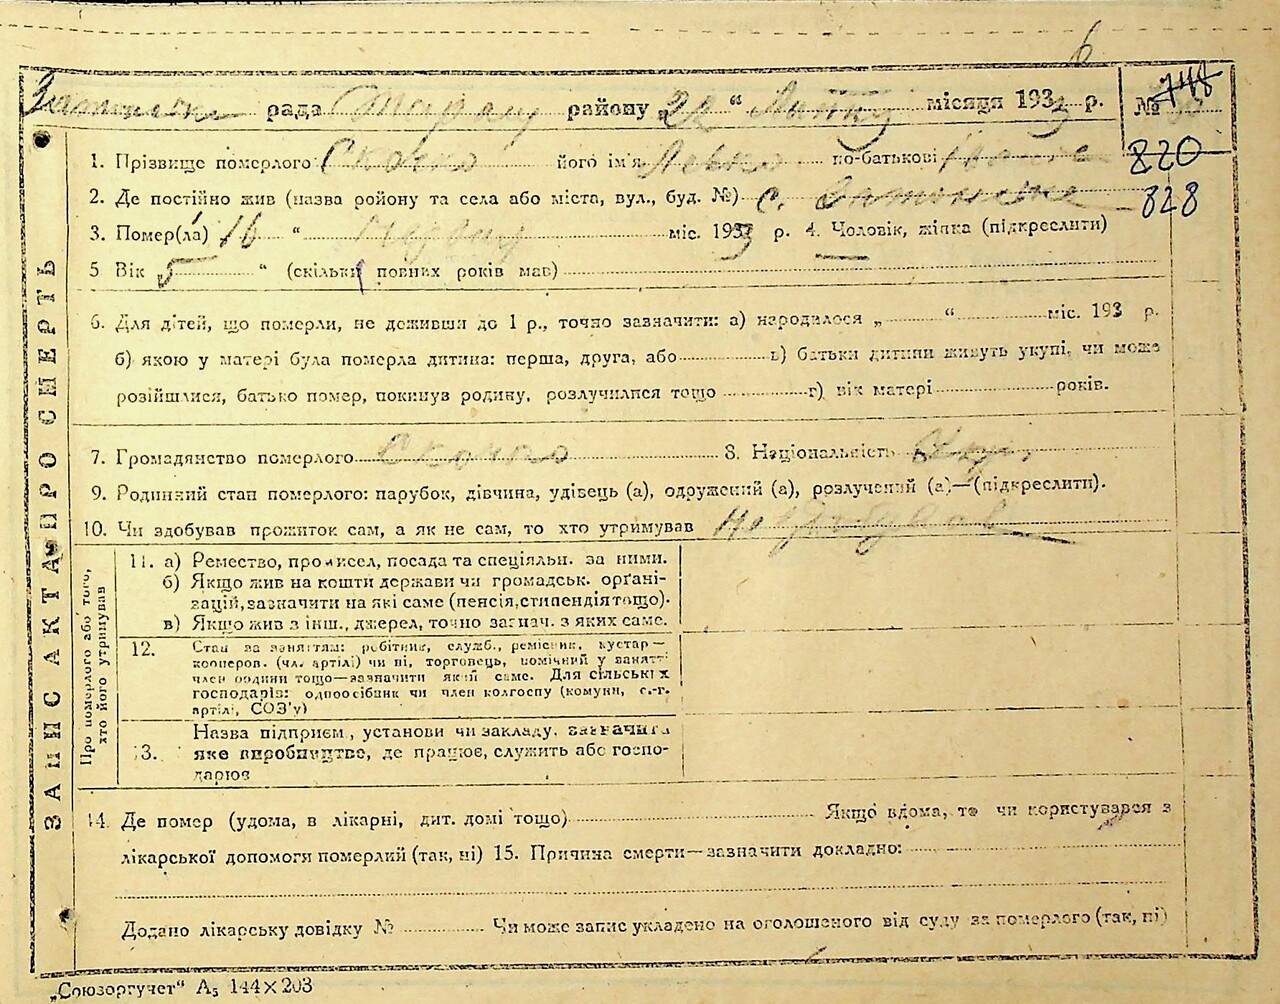 6
рада району „22“ місяця 1933 р. № 748
820
828
1. Прізвище померлого його ім'я Левко по-батькові
2. Де постійно жив (назва району та села або міста, вул., буд. №) с.
3. Помер(ла) 16 “ міс. 1933 р. 4. Чоловік, жінка (підкреслити)
5 Вік 5 “ (скільки повних років мав)
6. Для дітей, що померли, не доживши до 1 р., точно зазначити: а) народилося „ “ міс. 193 р.
б) якою у матері була померла дитина: перша, друга, або в) батьки дитини живуть укупі, чи може
розійшлися, батько помер, покинув родину, розлучилися тощо г) вік матері років.
7. Громадянство померлого 8. Національність Укр.
9. Родинний стан померлого: парубок, дівчина, удівець (а), одружений (а), розлучений (а)—(підкреслити).
10. Чи здобував прожиток сам, а як не сам, то хто утримував
ЗАПИС АКТА ПРО СМЕРТЬ
Про померлого або того,
хто його утримував
11. а) Ремество, промисел, посада та спеціяльн. за ними.
б) Якщо жив на кошти держави чи громадськ. орґані-
зацій, зазначити на які саме (пенсія, стипендія тощо).
в) Якщо жив з інш., джерел, точно зазнач. з яких саме.
12. Стан за заняттям: робітник, служб., ремісник, кустар—
кооперов. (чл. артілі) чи ні, торговець, помічний у занятті
член родини тощо—зазначити який саме. Для сільських
господарів: одноосібник чи член колгоспу (комуни, с.-г.
артілі, СОЗ'у)
13. Назва підприєм., установи чи закладу, зазначити
яке виробництво, де працює, служить або госпо-
дарює
14. Де помер (удома, в лікарні, дит. домі тощо) Якщо вдома, то чи користувався з
лікарської допомоги померлий (так, ні) 15. Причина смерти—зазначити докладно:
Додано лікарську довідку № Чи може запис укладено на оголошеного від суду за померлого (так, ні)
„Союзоргучет“ А₅ 144×203